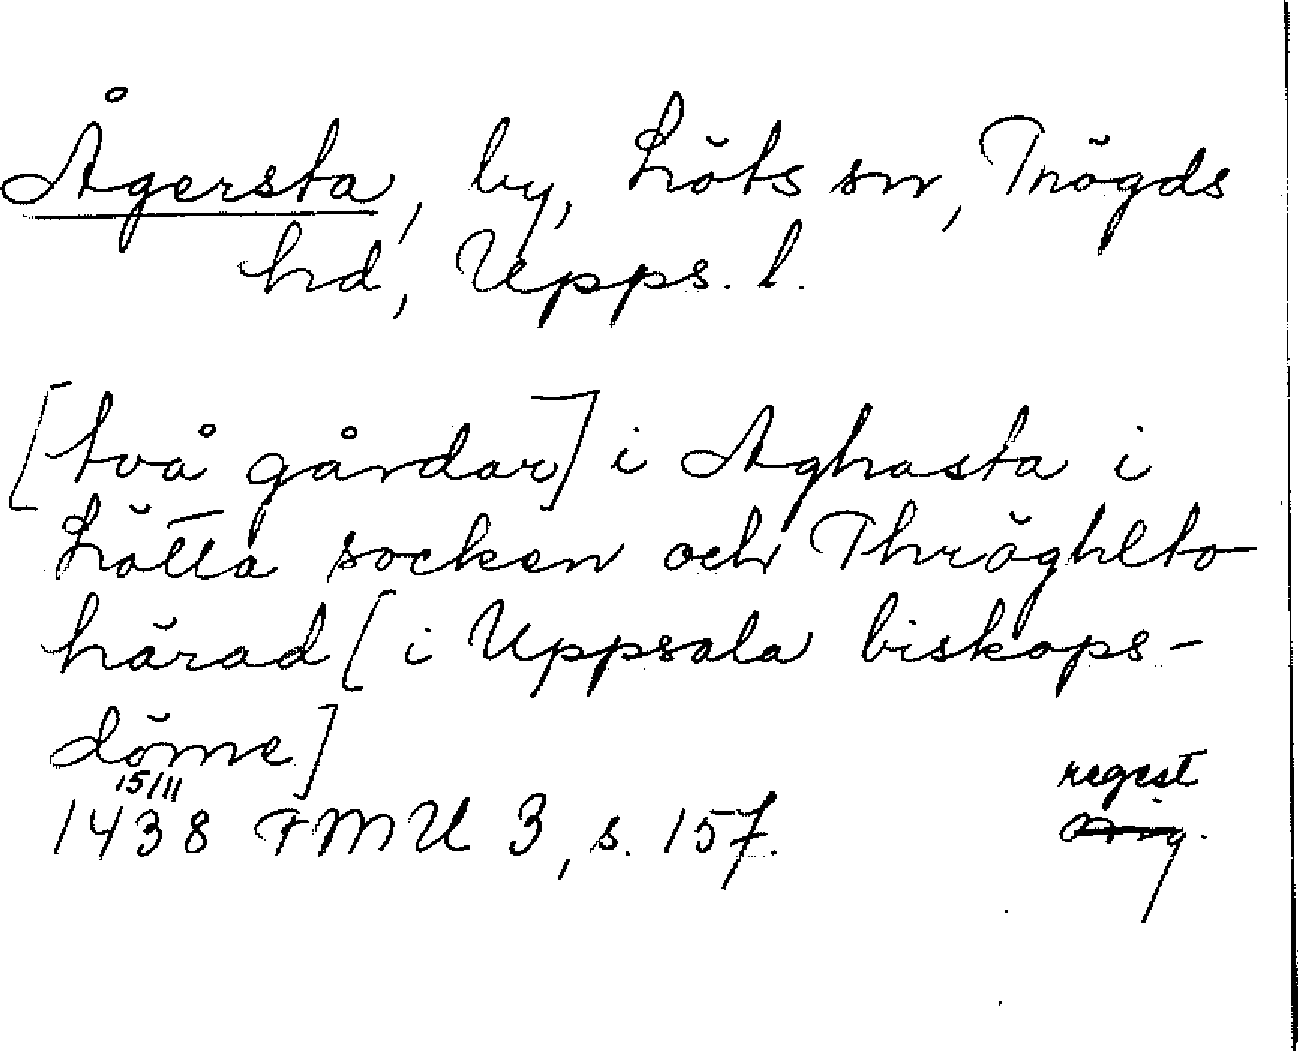 Ågersta, by, Löts sn, Trögds
hd, Upps. l.
[två gårdar] i Aghasta i
Lötta socken och Thröghlto
härad [i Uppsala biskops-
döme]
15/11
1438 FMU 3, s. 157.
regest